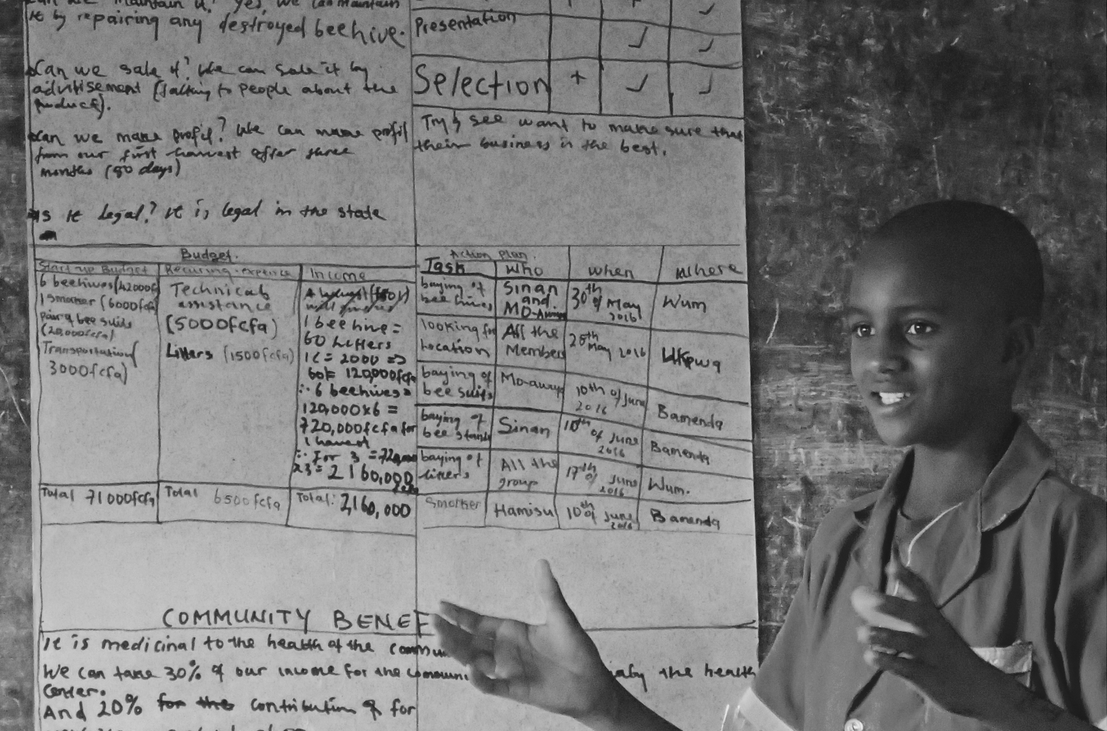 it by repairing any destroyed beehive.
Can we sale it? We can sale it by
advitisement (talking to people about the
product).
Can we make profit? We can make profit
from our first harvest after three
months (90 days)
Is it legal? it is legal in the state
Presentation
Selection +
Try & see want to make sure that
their business in the best.
Budget.
Start up Budget
6 beehives (42000fcfa)
1 smoker (6000fcfa)
pair of bee suits
(20,000fcfa)
Transportation
3000fcfa)
Total 71000fcfa
Recuring-expence
Technical
assistance
(5000fcfa)
Litters (1500fcfa)
Total 6500fcfa
Income
1 bee hive =
60 Litters
1L = 2000 =>
60l = 120,000fcfa
∴ 6 beehives =
120,000x6 =
720,000fcfa for
1 harvest
∴ For 3 =
x3 = 2160,000
Total: 2,160,000
Action plan.
Task Who When Where
baying of bee hives Sinan and MO-Awwp 30th of May 2016 Wum
looking for Location All the Members 25th May 2016 Ukpwa
baying of bee suits Mo-awwp 10th of June 2016 Bamenda
baying of bee stand Sinan 10th of June 2016 Bamenda
baying of litters All the group 17th of June 2016 Wum.
Smoker Hamisu 10th of June 2016 Bamenda
COMMUNITY BENEF
It is medicinal to the health of the commu
We can take 30% of our income for the communi the health
center.
And 20% for the contribution of for